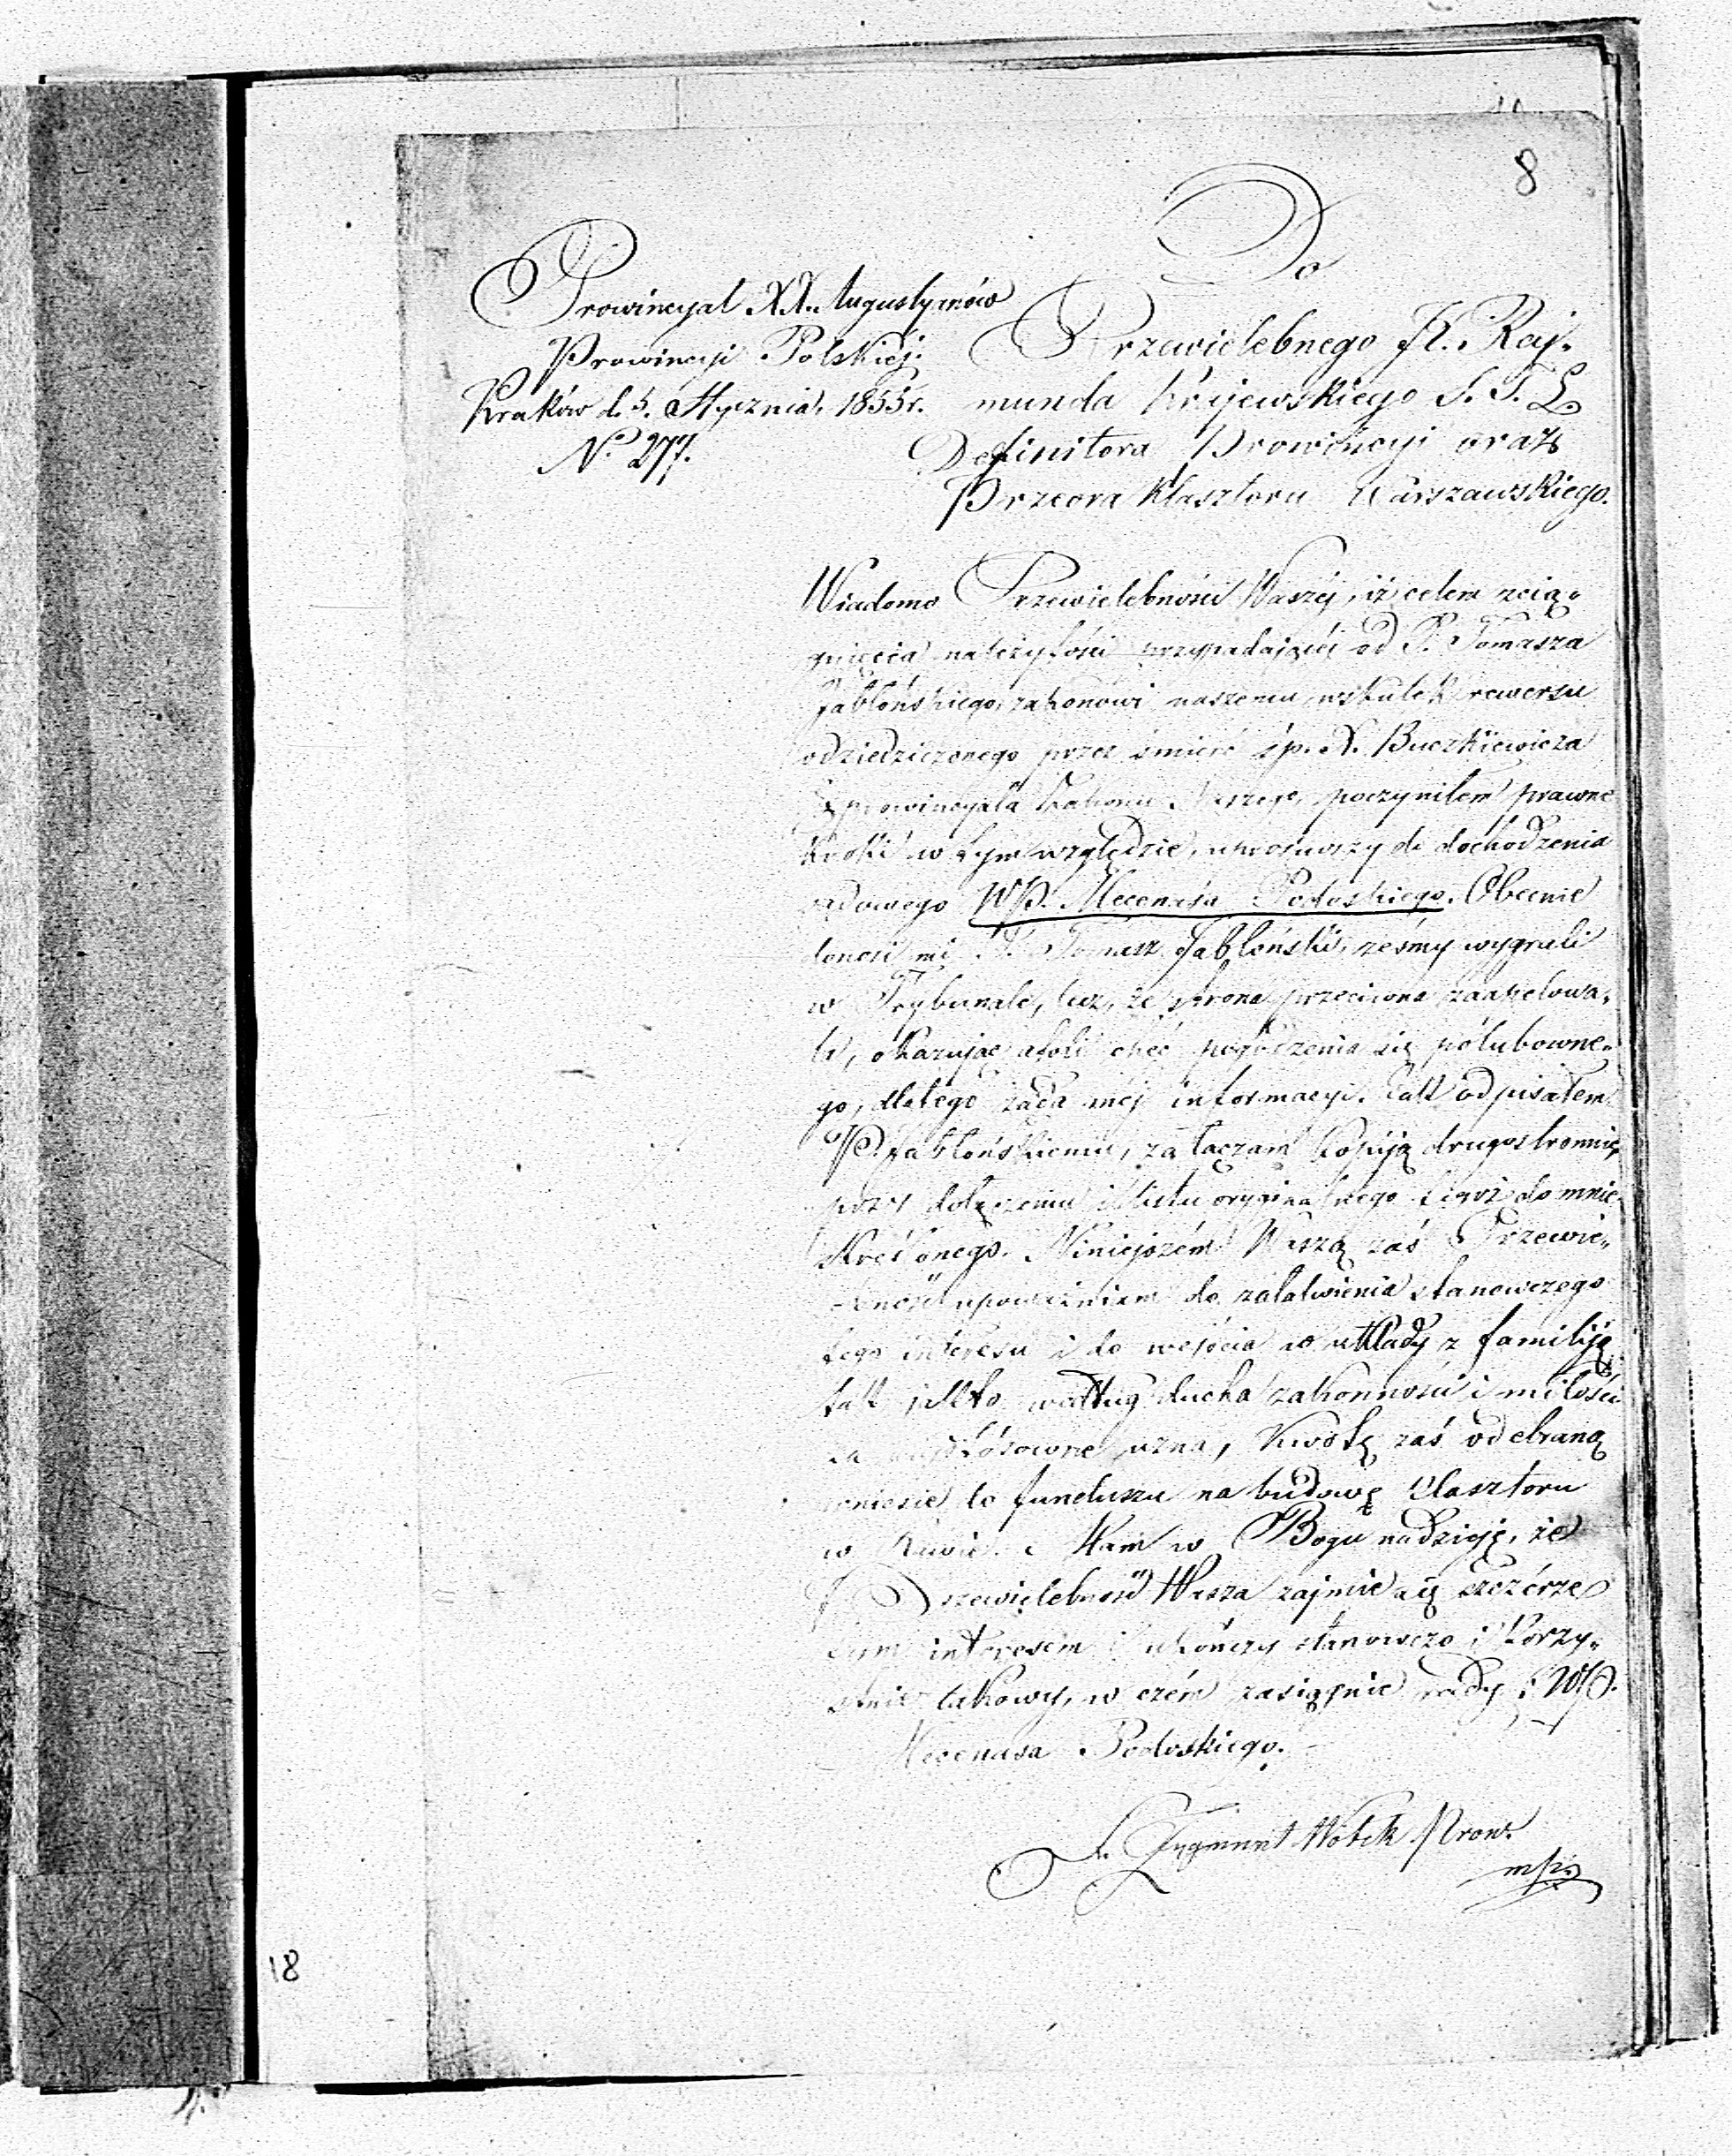 8
Prowincyał XX. Augustyanów
Prowincyi Polskiej.
Kraków d. 5. Stycznia, 1855r.
No 277.
Do
Przewielebnego X. Raj„
munda Krajewskiego S. T. L.
Definitora Prowincyi oraz
Przeora Klasztoru Warszawskiego.
Wiadomo Przewielebności Waszéj, iż celem ścią„
gnięcia należytości przypadającéj od P. Tomasza
Jabłońskiego, zakonowi naszemu, wskutek rewersu
odziedziczonego przez śmierć śp. X. Buczkiewicza
Exprowincyała Zakonu Naszego, poczyniłem prawne
kroki w tym względzie, uprosiwszy do dochodzenia
sądowego WP. Mecenasa Podoskiego. Obecnie
donosi mi P. Tomasz Jabłoński, żeśmy wygrali
w Trybunale, lecz, że strona przeciwna zaapelowa„
ła, okazując atoli chęć pogodzenia się polubowne„
go, dlatego żąda méj informacyi. Jak odpisałem
P. Jabłońskiemu, załączam kopiją drugostronnie,
przy dołączeniu i listu oryginalnego do mnie
kreślonego. Niniejszém Waszą zaś Przewie„
lebność upoważniam do załatwienia stanowczego
tego interesu i do wejścia w układy z familiją
tak jak to według ducha zakonności i miłości
za stósowne uzna, kwotę zaś odebraną
wniesie do funduszu na budowę klasztoru
w Rawie. Mam w Bogu nadzieję, że
Przewielebność Wasza zajmie się szczérze
tym interesem i ukończy stanowczo i korzy„
stnie takowy, w czém zasięgnie rady i WP.
Mecenasa Podoskiego.
X. Zygmunt Wołek Prow.
mp
18